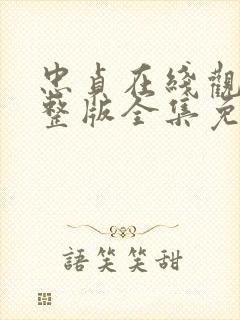 忠貞在綫觀
整版全集免
語笑笑甜